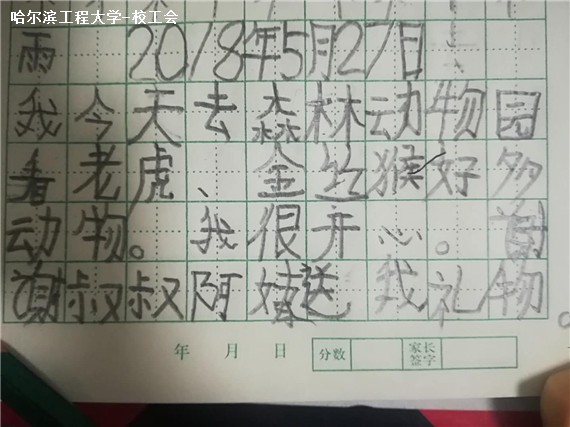 哈尔滨工程大学-校工会
雨 2018年5月27日
我今天去森林动物园
看老虎、金丝猴好多
动物。我很开心。谢
谢叔叔阿姨送我礼物。
年 月 日 分数 家长签字